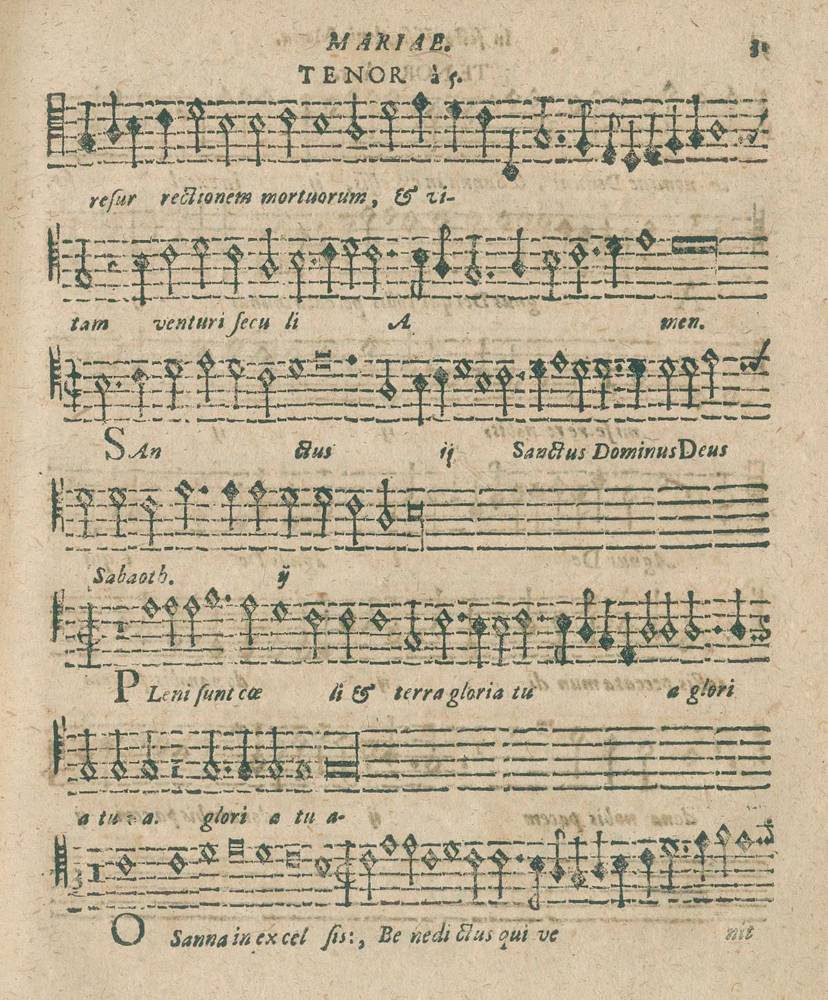 MARIAE.
TENOR à 5.
resur rectionem mortuorum, & vi-
tam venturi secu li A men.
SAn ctus ij Sanctus Dominus Deus
Sabaoth. ij
PLeni sunt cœ li & terra gloria tu a glori
a tu a. glori a tu a-
OSanna in excel sis:, Be nedi ctus qui ve nit